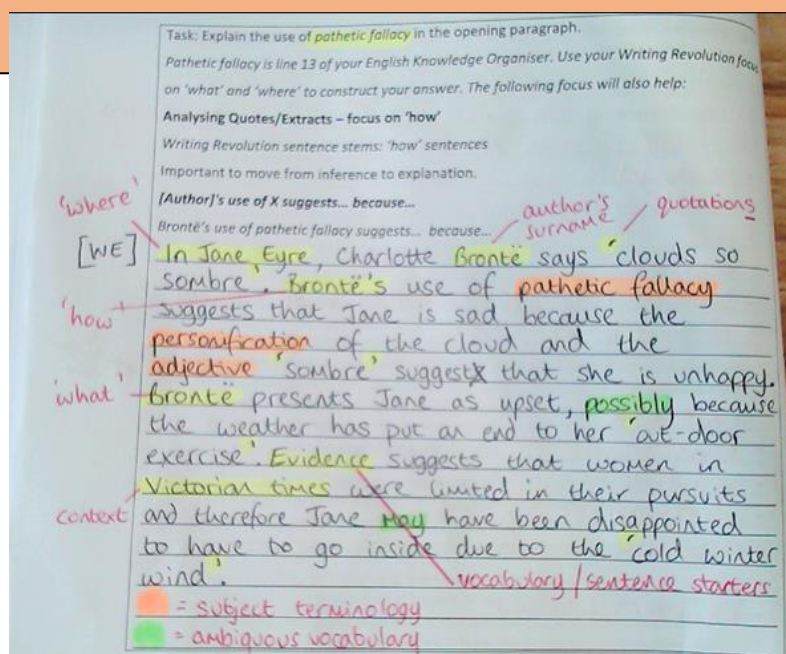 Task: Explain the use of pathetic fallacy in the opening paragraph.
Pathetic fallacy is line 13 of your English Knowledge Organiser. Use your Writing Revolution focus
on 'what' and 'where' to construct your answer. The following focus will also help:
Analysing Quotes/Extracts – focus on 'how'
Writing Revolution sentence stems: 'how' sentences
Important to move from inference to explanation.
'where'
[Author]'s use of X suggests... because...
author's surname
quotations
Brontë's use of pathetic fallacy suggests... because...
[WE] In Jane Eyre, Charlotte Brontë says 'clouds so
sombre'. Brontë's use of pathetic fallacy
'how' suggests that Jane is sad because the
personification of the cloud and the
adjective 'sombre' suggests that she is unhappy.
'what' Brontë presents Jane as upset, possibly because
the weather has put an end to her 'out-door
exercise'. Evidence suggests that women in
Victorian times were limited in their pursuits
context and therefore Jane may have been disappointed
to have to go inside due to the 'cold winter
wind'.
vocabulary/sentence starters
= subject terminology
= ambiguous vocabulary